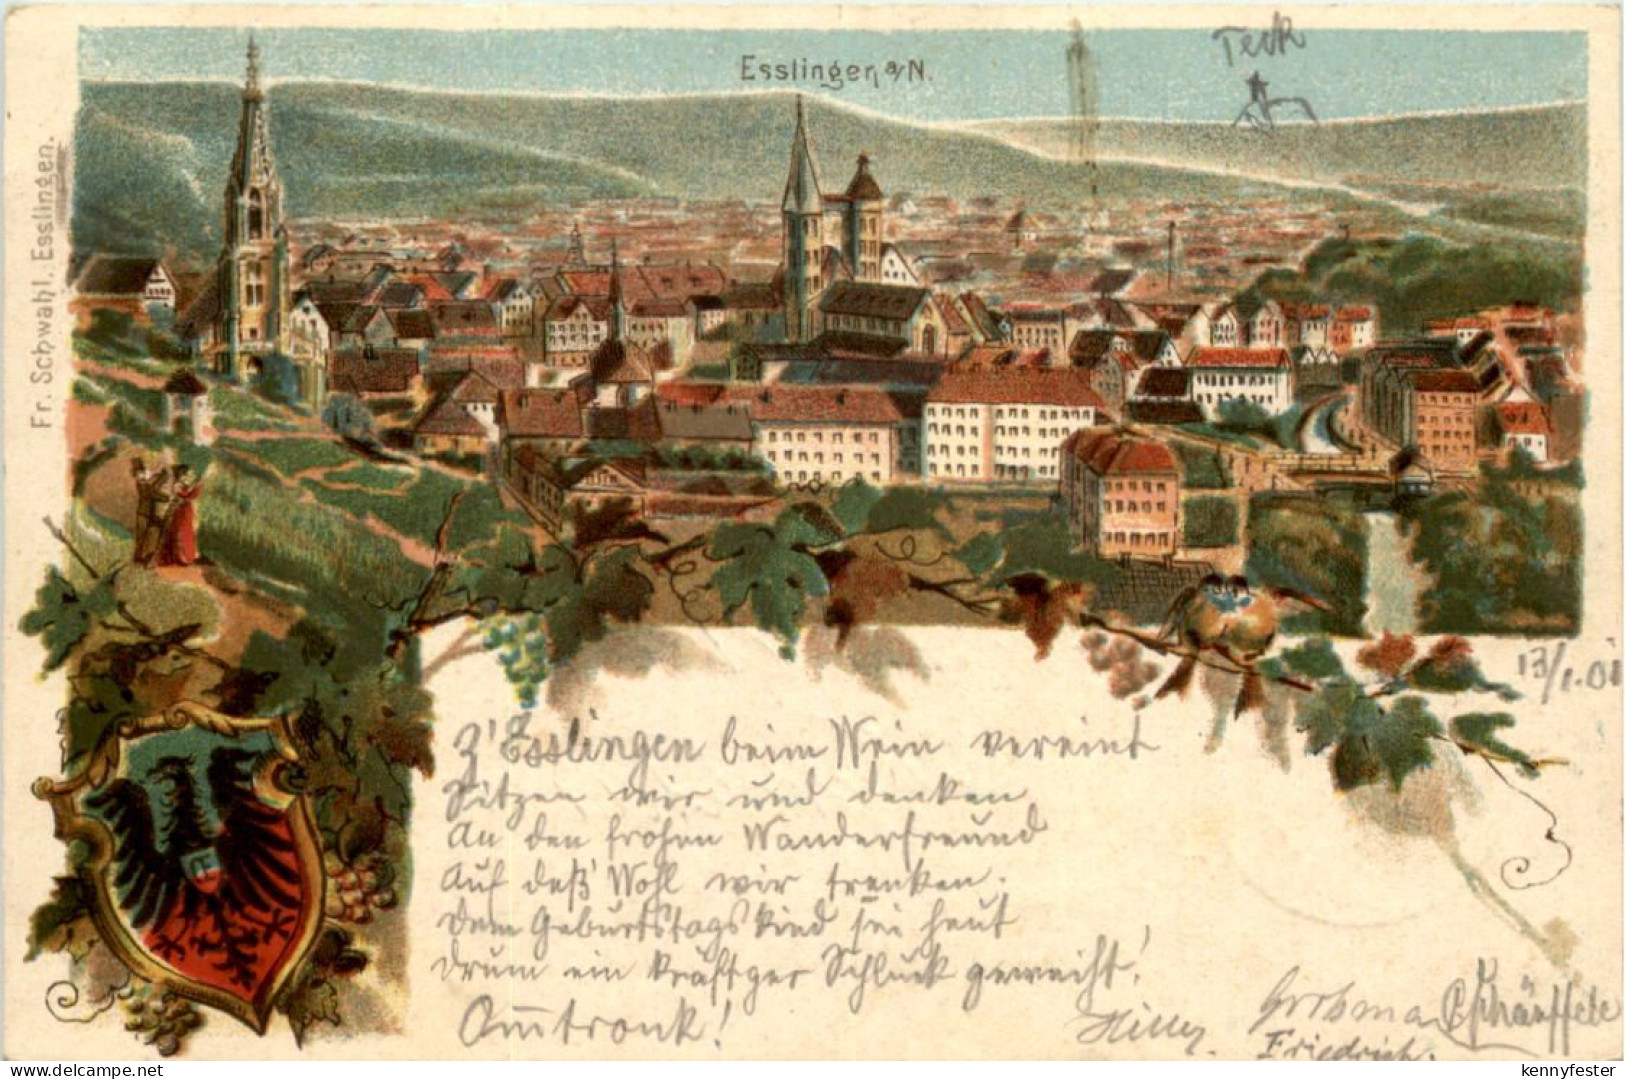 Esslingen a/N.
Teck
Fr. Schwahl. Esslingen.
13/1.01
Z' Esslingen beim Wein vereint
Sitzen wir und denken
An den frohen Wanderfreund
Auf deß' Wohl wir trenken.
Dem Geburtstagskind sei heut
drum ein kräftger Schluck geweiht!
Omtronk!
Grosman
Schäuffele
Friedrich.
delcampe.net
kennyfester